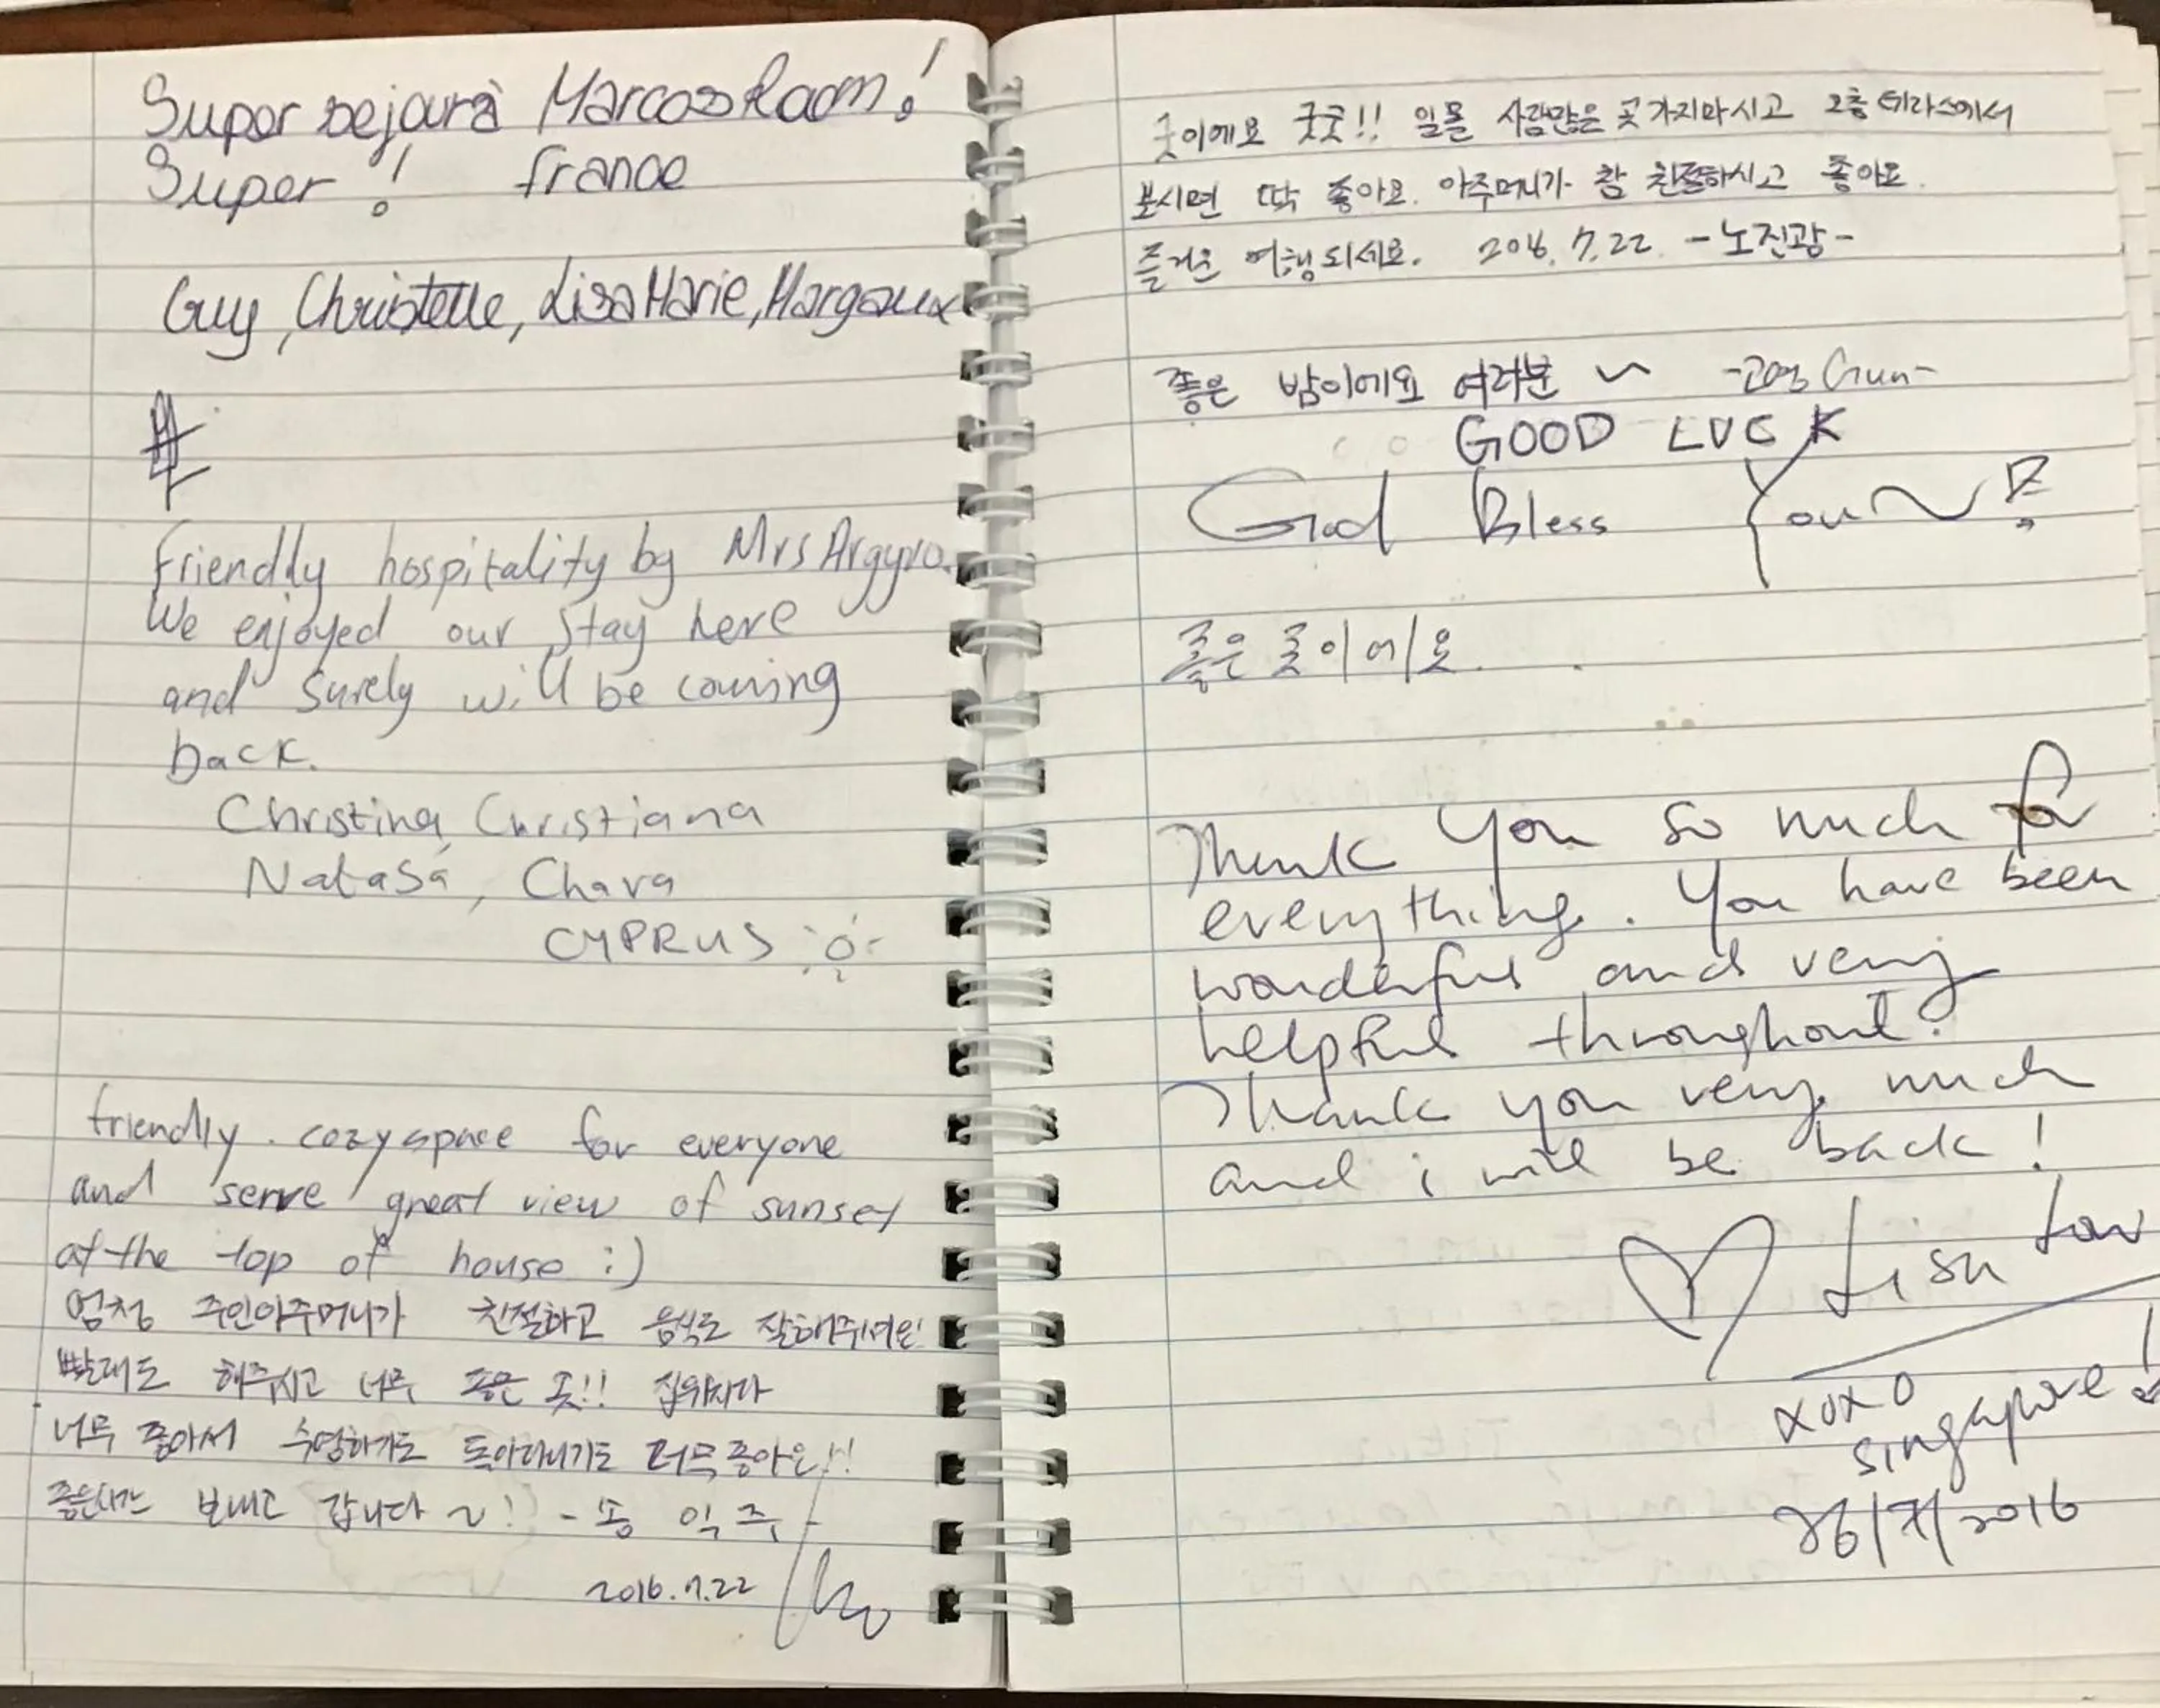 Super sejour à Marcos Room!
Super! france
Guy, Christelle, Lisa Marie, Margaux
friendly hospitality by Mrs Argyro.
We enjoyed our stay here
and surely will be coming
back.
Christina, Christiana
Natasa, Chara
CYPRUS
friendly. cozy space for everyone
and serve great view of sunset
at the top of house :)
엄청 주인아주머니가 친절하고 음식도 잘해주시고
빨래도 해주시고 너무 좋은 곳!! 집위치다
너무 좋아서 수영하기도 돌아다니기도 너무 좋아요!!
좋은시간 보내고 갑니다~! -송익주-
2016.7.22
굿이에요 굿굿!! 일몰 사람많은 곳 가지마시고 2층 테라스에서
보시면 딱 좋아요. 아주머니가 참 친절하시고 좋아요.
즐거운 여행되세요. 2016.7.22 -노진광-
좋은 밤이에요 여러분 ~ Gun-
GOOD LUCK
God Bless You~
좋은 곳이에요.
Thank you so much for
everything. You have been
wonderful and very
helpful throughout.
Thank you very much
and i will be back!
Lisa Low
xoxo
singapore!
26/7/2016